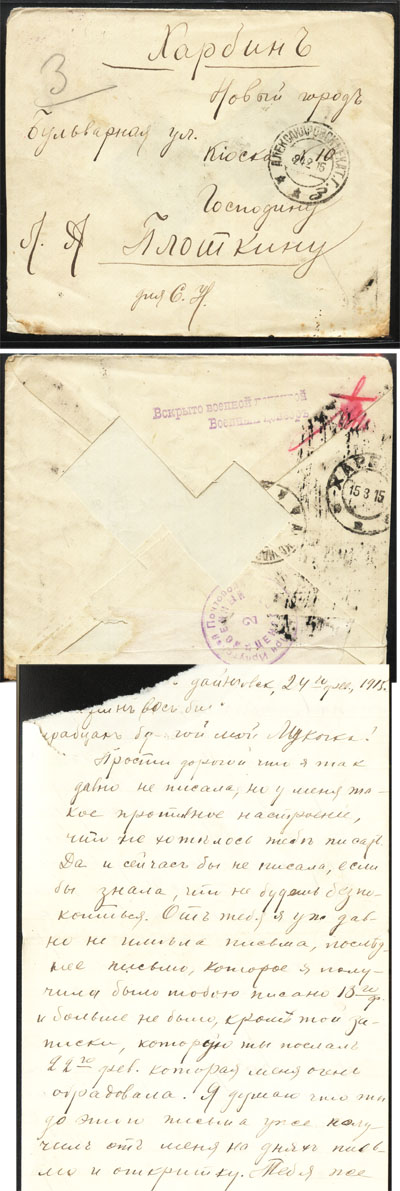 3
Харбинъ
Новый городъ
Бульварная ул.
Кіоскъ
АЛЕКСАНДРОВСКЪ ЕКАТ. Г.
Господину
Л. А. Плоткину
для С. Н.
Вскрыто военной цензурой
Военный цензоръ
ХАРБ
15 3 15
24 го фев. 1915.
мой Мукочка!
Прости дорогой что я так
давно не писала, но у меня та-
кое противное настроение,
что не хотѣлось тебѣ писать.
Да и сейчасъ бы не писала, если
бы знала, что не будешь безпо-
коиться. Отъ тебя я уж дав-
но не имѣла письма, послѣд-
нее письмо, которое я полу-
чила было тобою писано 15го ф.
и больше не было, кромѣ той за-
писки, которую ты послалъ
22го фев. которая меня очень
обрадовала. Я думаю что ты
до этого письма уже полу-
чилъ отъ меня на дняхъ пись-
мо и открытку. Тебя же